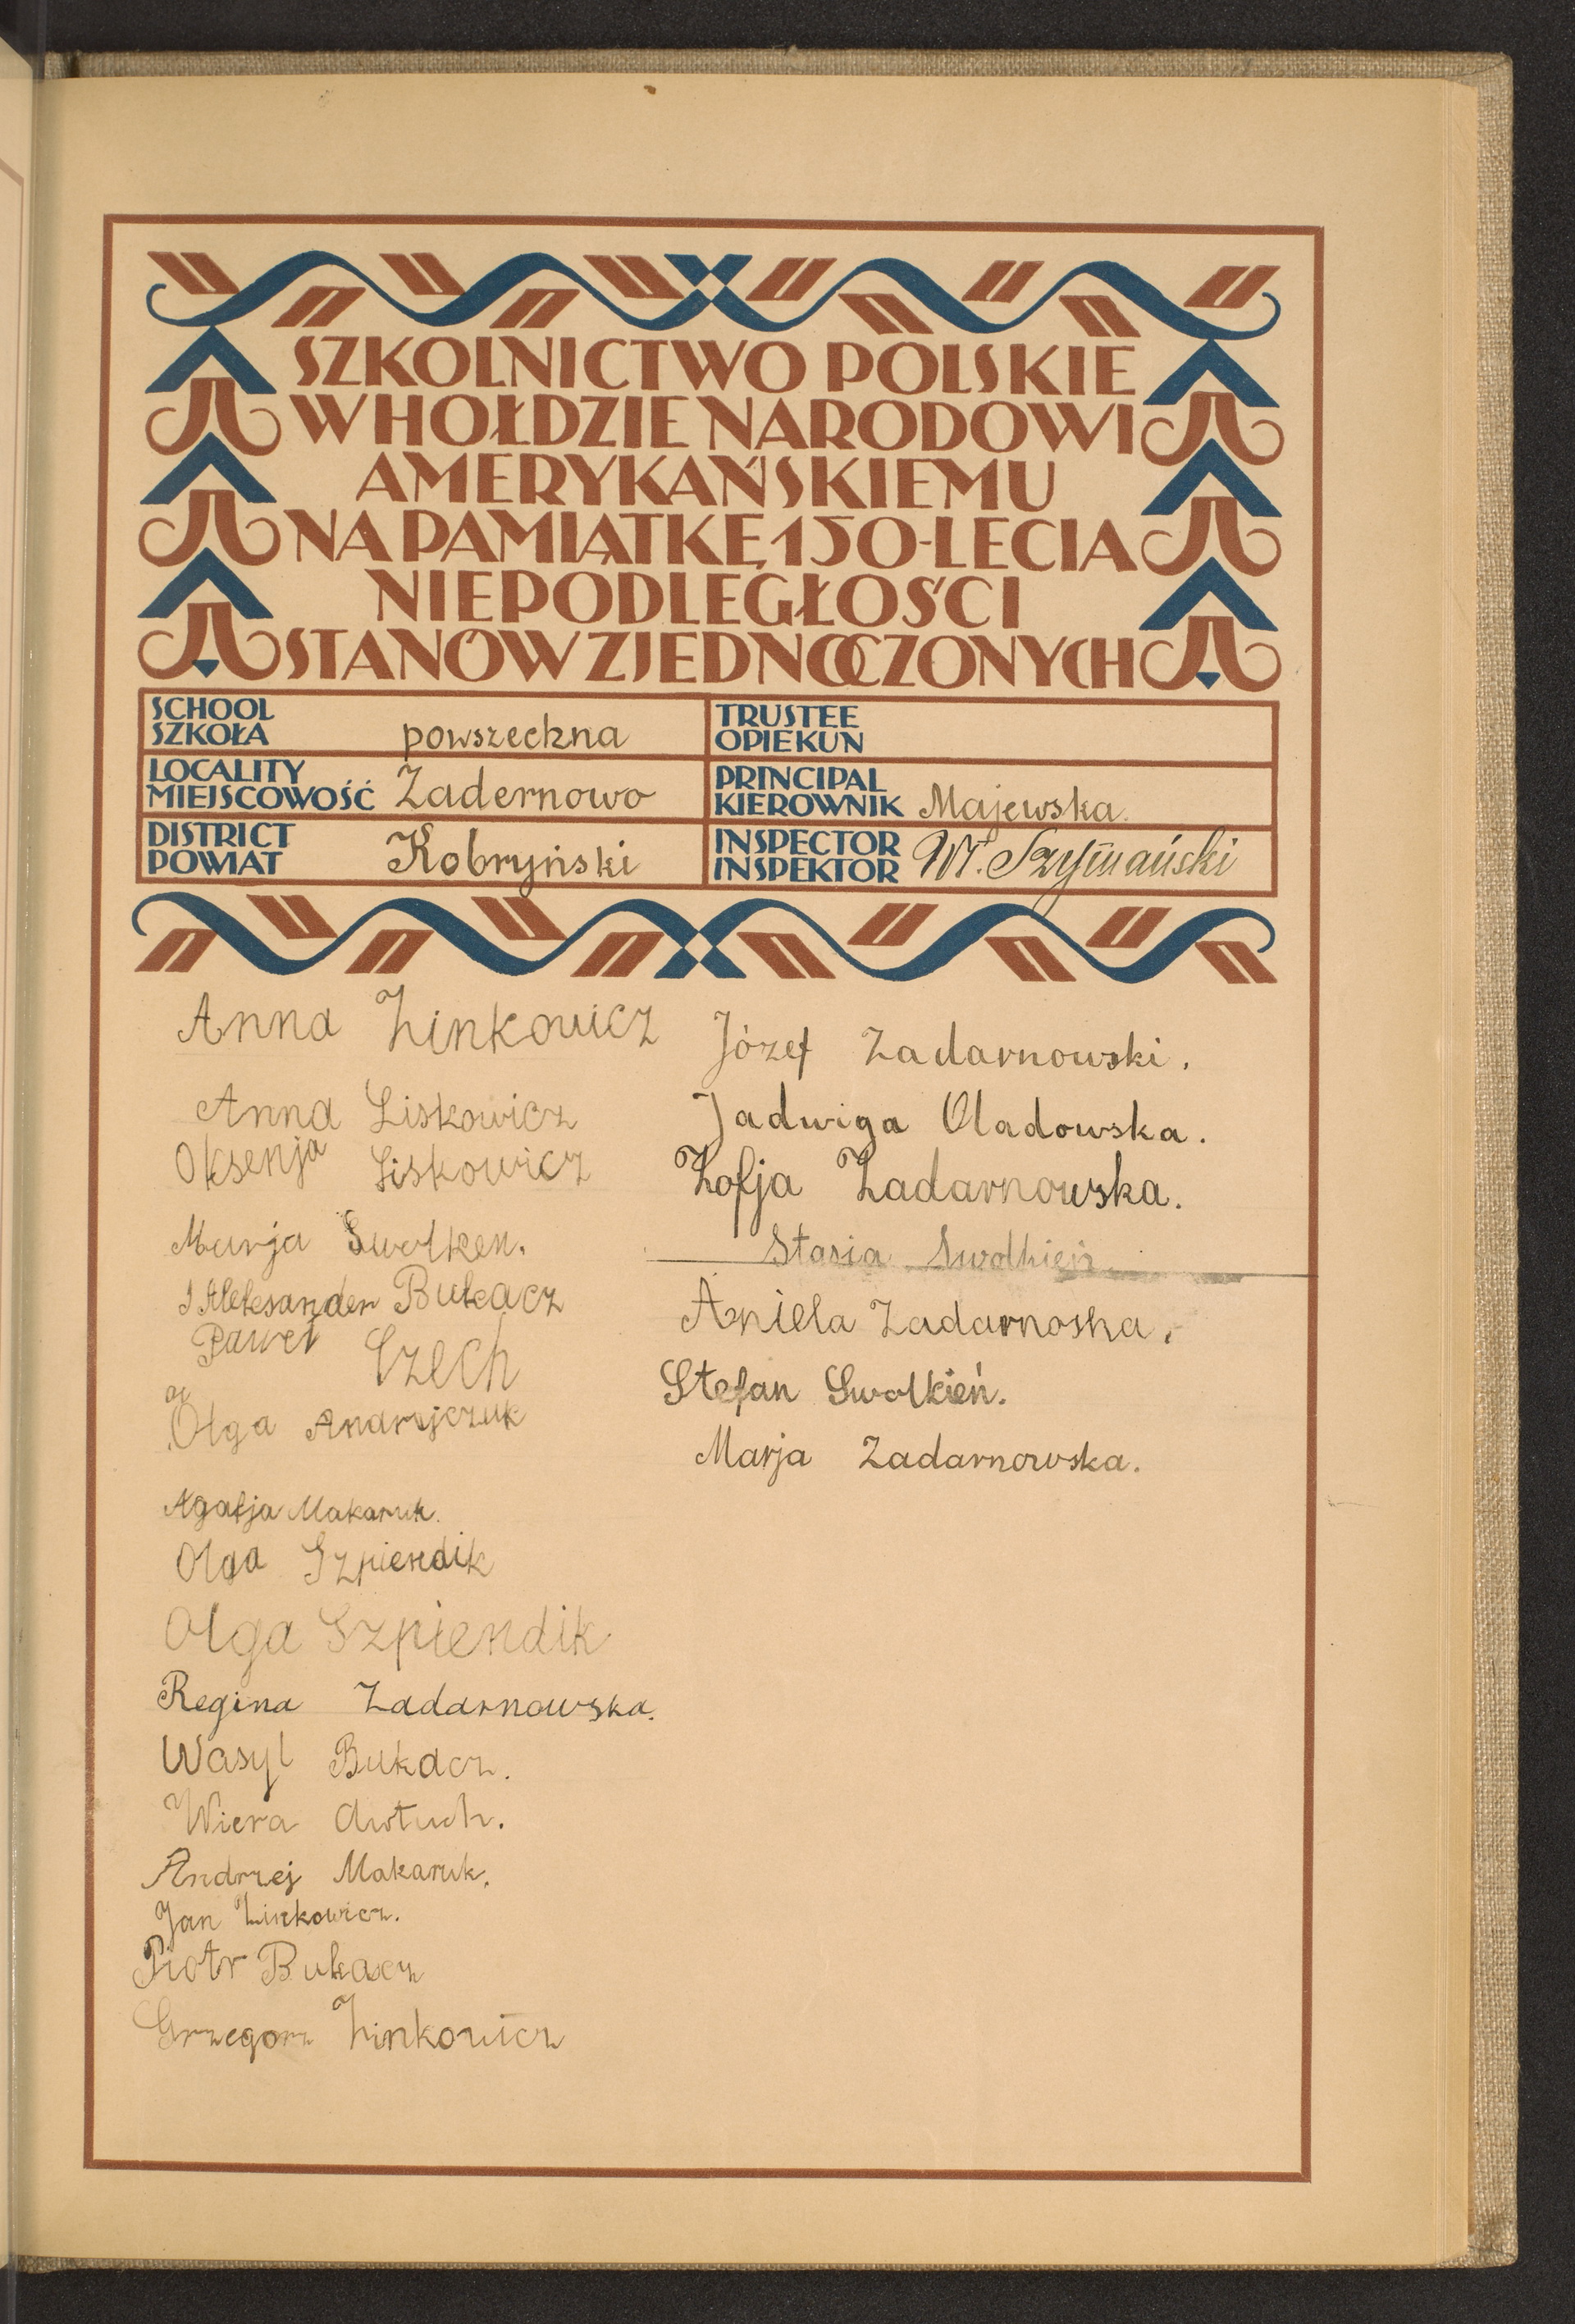 SZKOLNICTWO POLSKIE
W HOŁDZIE NARODOWI
AMERYKAŃSKIEMU
NA PAMIĄTKĘ 150-LECIA
NIEPODLEGŁOŚCI
STANÓW ZJEDNOCZONYCH
SCHOOL
SZKOŁA powszechna
LOCALITY
MIEJSCOWOŚĆ Zadernowo
DISTRICT
POWIAT Kobryński
TRUSTEE
OPIEKUN
PRINCIPAL
KIEROWNIK Majewska.
INSPECTOR
INSPEKTOR Wł. Szymański
Anna Zinkowicz
Anna Liskowicz
Oksenja Liskowicz
Marja Swolken.
Aleksander Bukacz
Paweł Szech
Olga Andrejczuk
Agafja Makaruk.
Olga Szpiendik
Olga Szpiendik
Regina Zadarnowska.
Wasyl Bukacz.
Wiera Awtuch.
Andrzej Makaruk.
Jan Zinkowicz.
Piotr Bukacz
Grzegorz Zinkowicz
Józef Zadarnowski.
Jadwiga Oladowska.
Zofja Zadarnowska.
Stasia Swolkień.
Aniela Zadarnoska.
Stefan Swolkień.
Marja Zadarnowska.